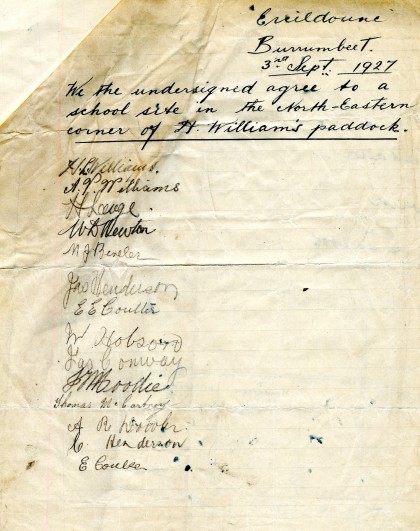 Ercildoune
Burrumbeet.
3rd Sept. 1927
We the undersigned agree to a
school site in the North-Eastern
corner of H. William's paddock.
H. Williams.
A. P. Williams
H Lange.
W D Newton
M J Bexler
Jas Henderson
E E Coulter
W Hobson
Jas Conway
J Moodie
Thomas McCarthy
A R
C. Henderson
E Coulter